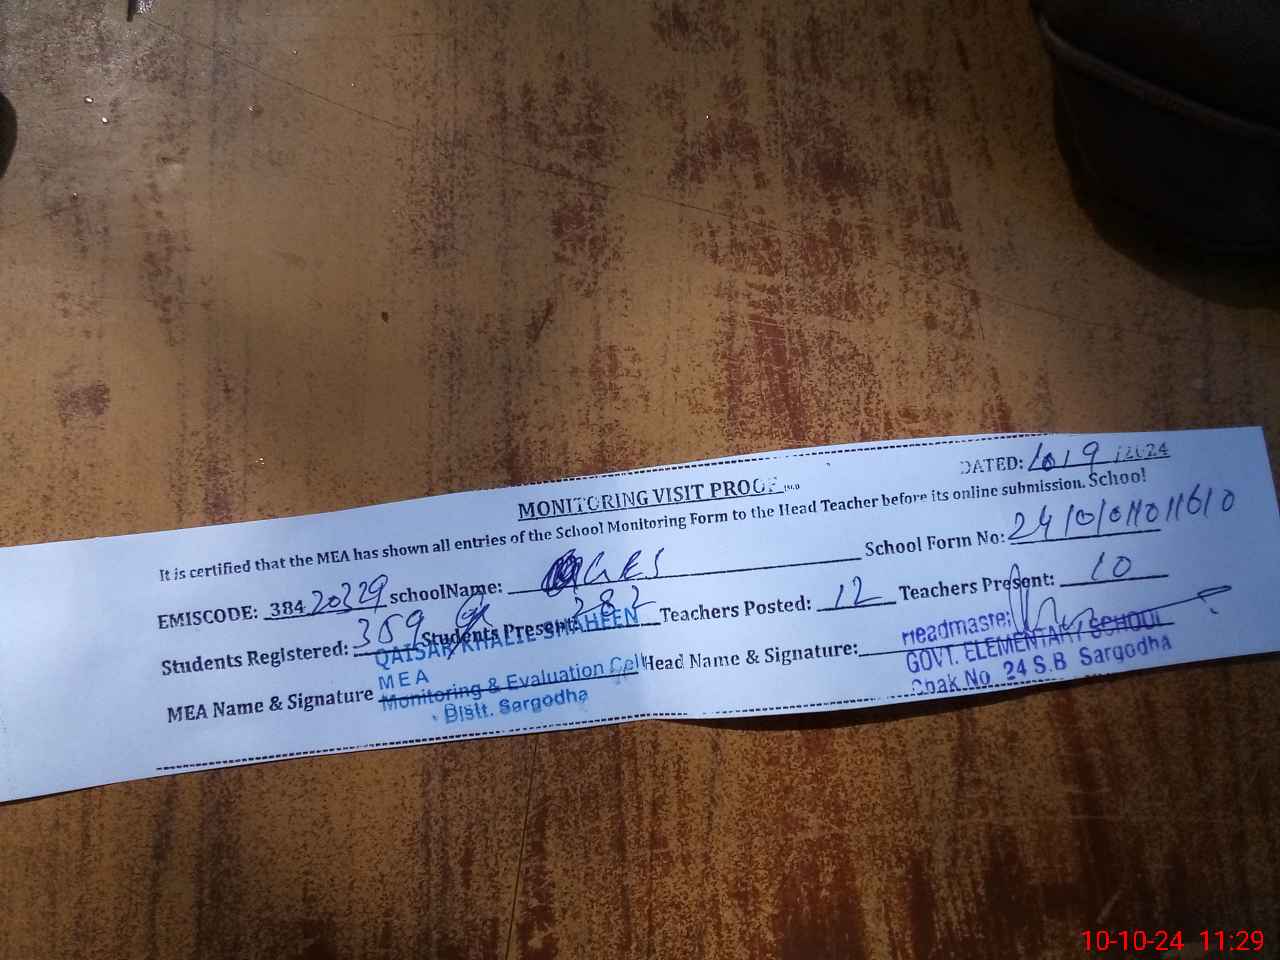 DATED: 10/9/2024
MONITORING VISIT PROOF
It is certified that the MEA has shown all entries of the School Monitoring Form to the Head Teacher before its online submission. School
EMISCODE: 38420329 schoolName: GES School Form No:
Students Registered: 359 Students Present: 282 Teachers Posted: 12 Teachers Present: 10
MEA Name & Signature Head Name & Signature:
QAISAR KHALIL SHAHEEN
MEA
Monitoring & Evaluation Cell
Distt. Sargodha
Headmaster
GOVT. ELEMENTARY SCHOOL
Chak No 24 S.B Sargodha
10-10-24 11:29